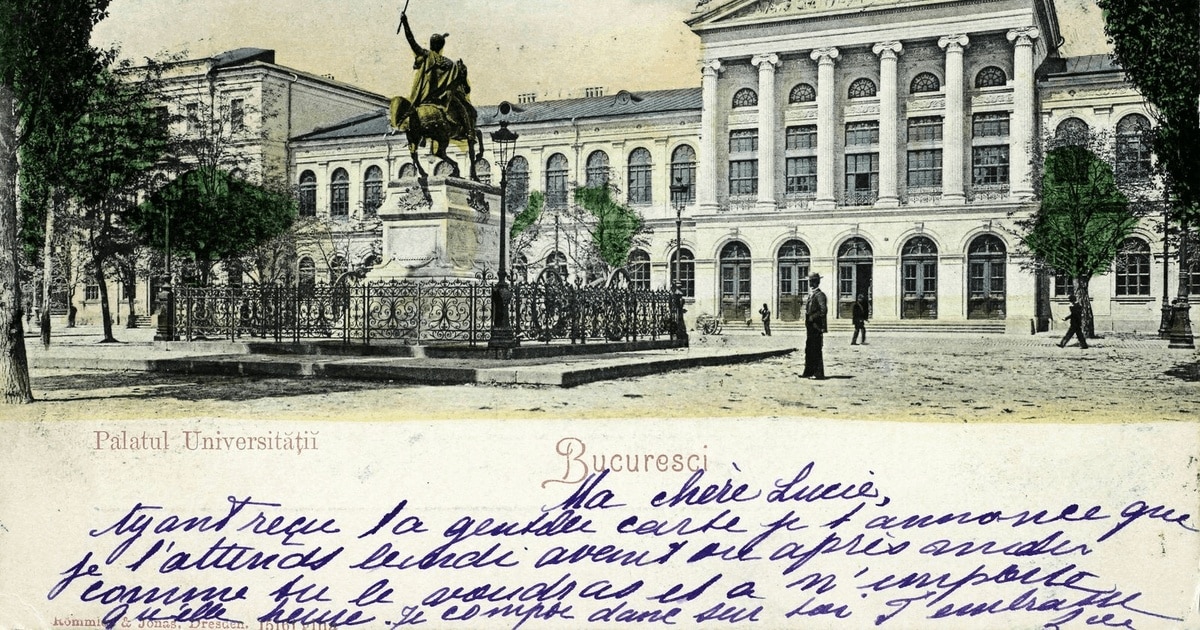 Palatul Universității
Bucuresci
Ma chère Lucie,
Ayant reçu ta gentille carte je t'annonce que
je t'attends lundi avant ou après midi
comme tu le voudras et à n'importe
quelle heure. Je compte donc sur toi. T'embrasse
Römmler & Jonas, Dresden.